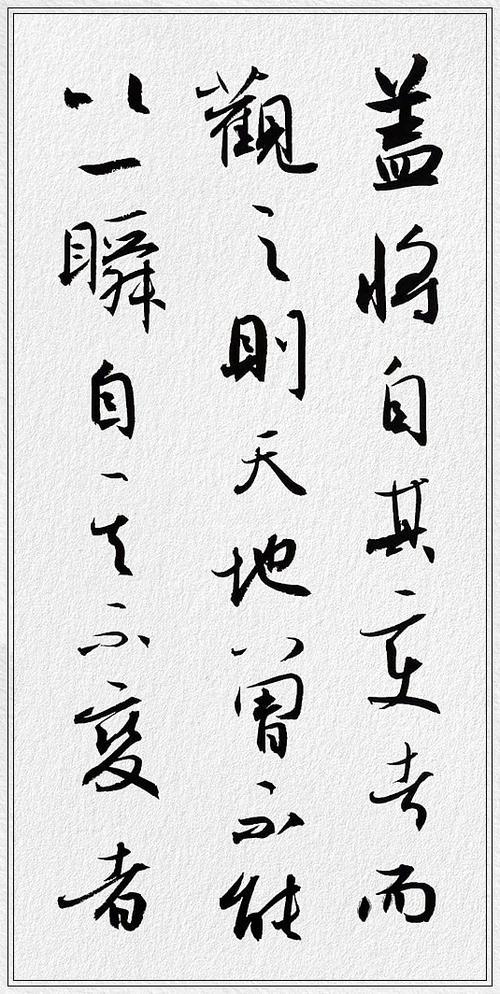 盖將自其變者而
觀之則天地曾不能
以一瞬自其不變者